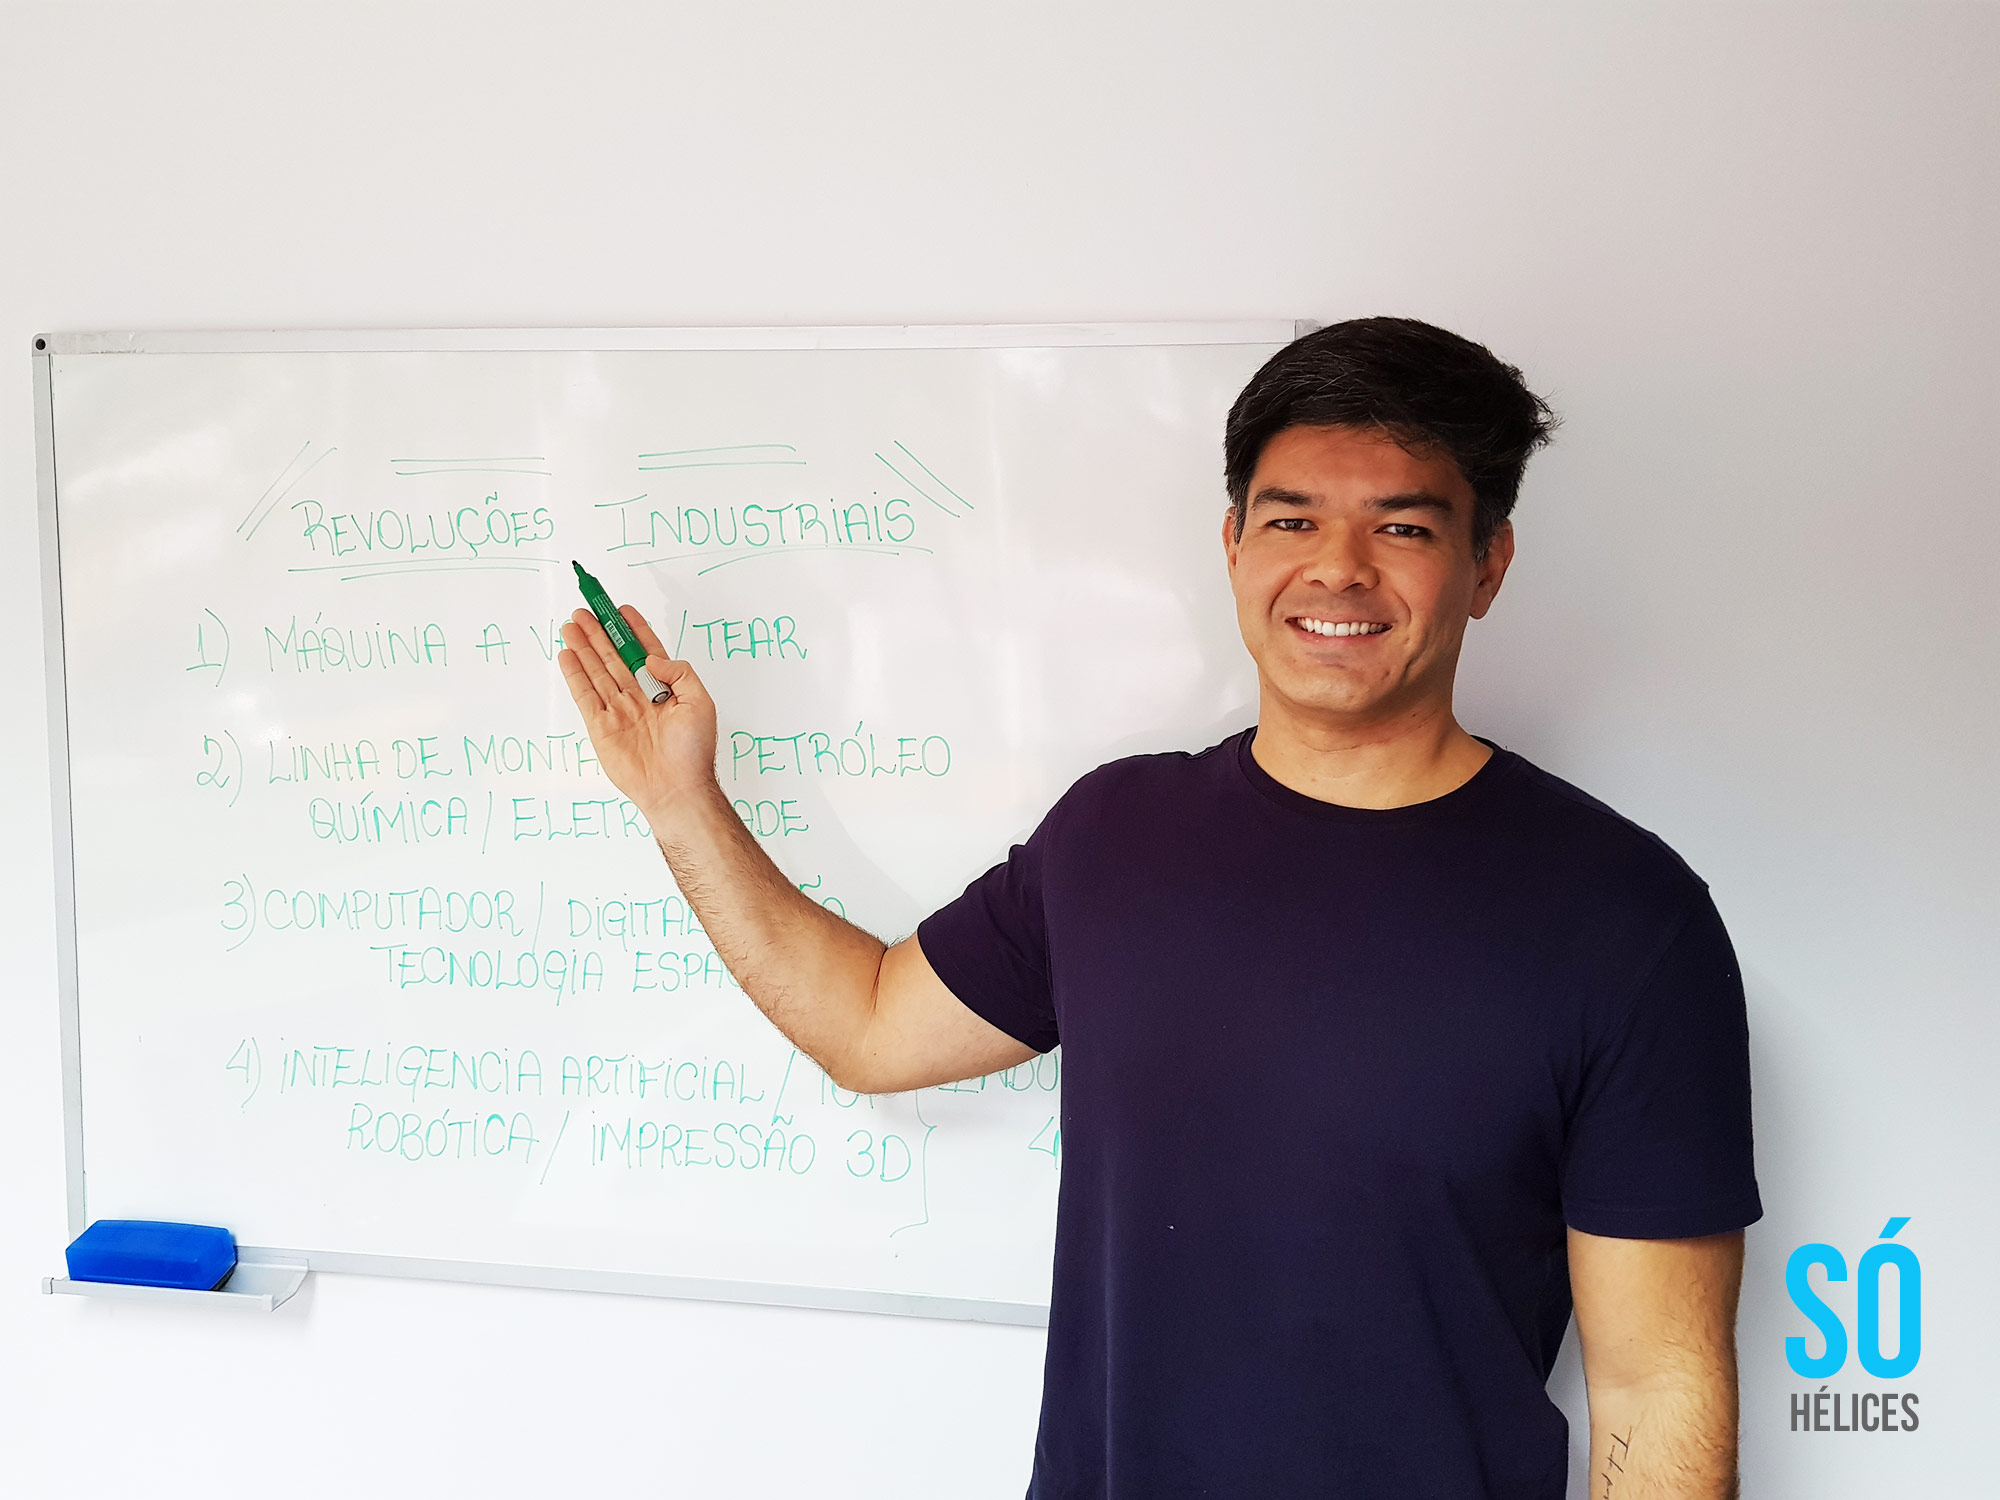 REVOLUÇÕES INDUSTRIAIS
1) MÁQUINA A / TEAR
2) LINHA DE PETRÓLEO
QUÍMICA /
3) COMPUTADOR /
TECNOLOGIA
4) INTELIGENCIA ARTIFICIAL /
ROBÓTICA / IMPRESSÃO 3D
SÓ
HÉLICES